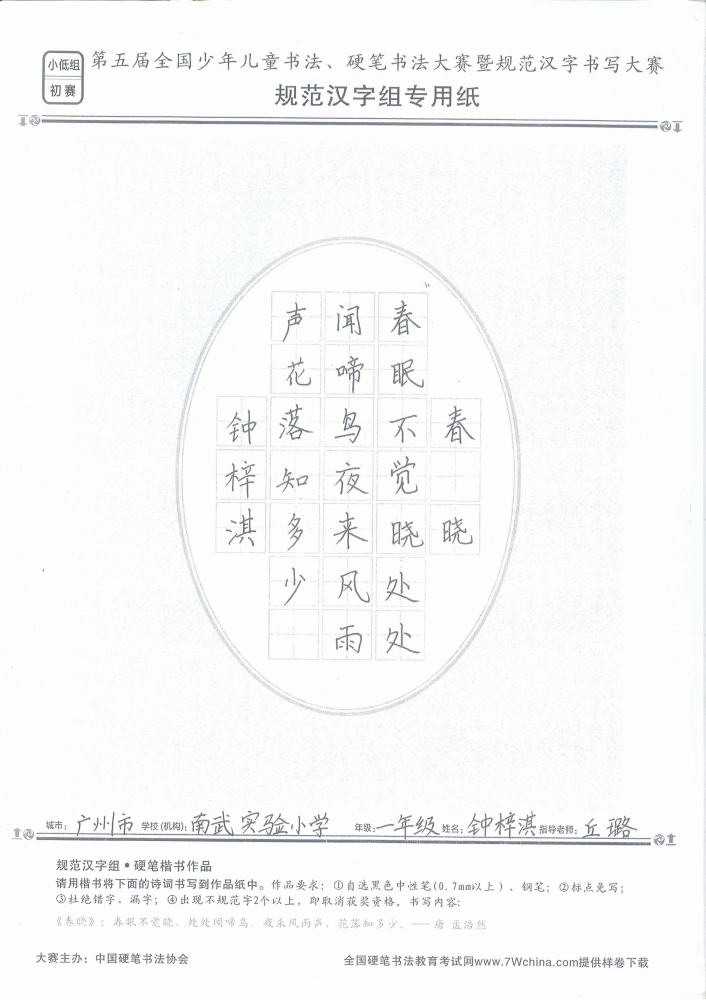 小低组
初赛
第五届全国少年儿童书法、硬笔书法大赛暨规范汉字书写大赛
规范汉字组专用纸
春晓
春眠不觉晓处处
闻啼鸟夜来风雨
声花落知多少
钟梓淇
城市：广州市 学校(机构)：南武实验小学 年级：一年级 姓名：钟梓淇 指导老师：丘璐
规范汉字组•硬笔楷书作品
请用楷书将下面的诗词书写到作品纸中。作品要求：①自选黑色中性笔(0.7mm以上)、钢笔；②标点免写；
③杜绝错字、漏字；④出现不规范字2个以上，即取消获奖资格。书写内容：
《春晓》：春眠不觉晓，处处闻啼鸟，夜来风雨声，花落知多少。——唐 孟浩然
大赛主办：中国硬笔书法协会
全国硬笔书法教育考试网www.7Wchina.com提供样卷下载